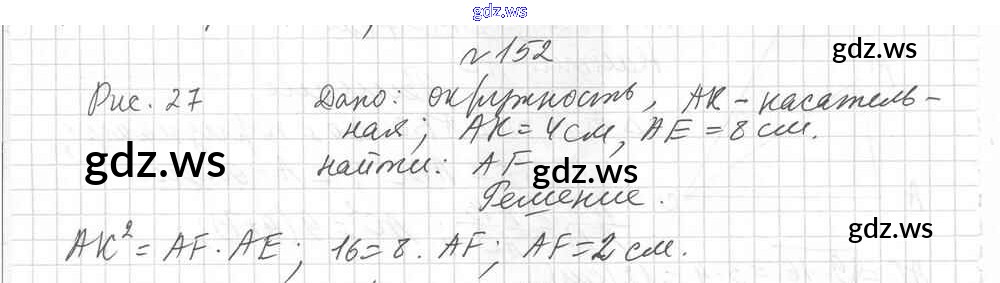 gdz.ws
№152
gdz.ws
Рис. 27 Дано: окружность, АК - касатель-
ная; АК = 4 см, АЕ = 8 см.
gdz.ws
найти: AF
gdz.ws
Решение.
gdz.ws
АК² = AF · АЕ; 16 = 8 · AF; AF = 2 см.